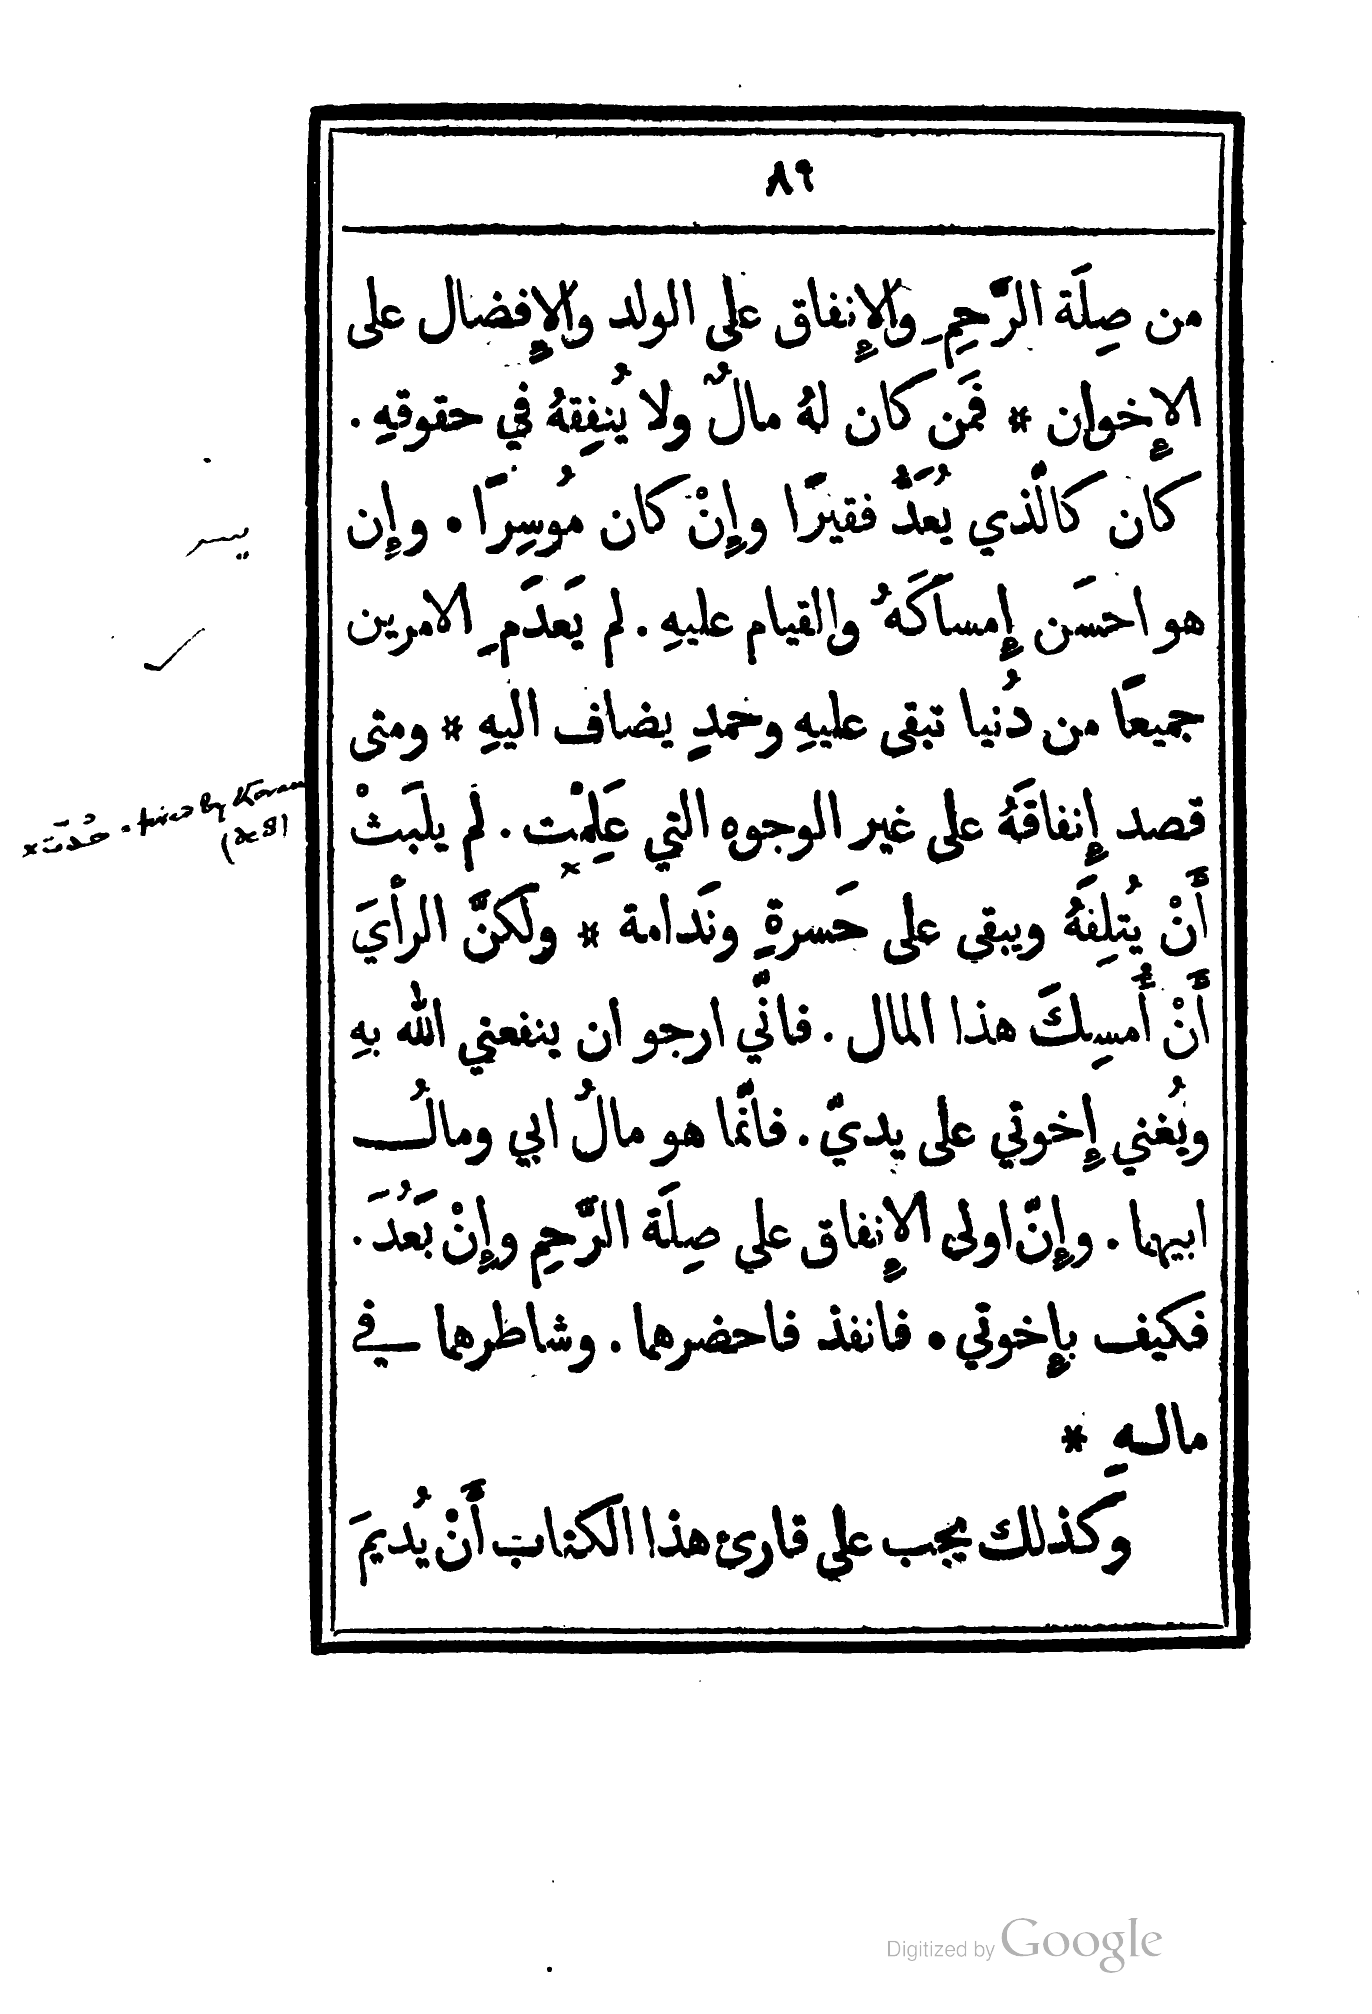 ٨٩
من صِلَة الرَّحِمِ والإِنفاق على الولد والإِفضال على
الإِخوان * فمَن كان لهُ مالٌ ولا يُنفِقهُ في حقوقهِ .
كان كالَّذي يُعَدُّ فقيرًا وإِنْ كان مُوسِرًا . وإِن
هو احسَن إِمساكَهُ والقيام عليهِ . لم يَعدَمِ الامرين
جميعًا من دُنيا تبقى عليهِ وحمدٍ يضاف اليهِ * ومتى
قصد إِنفاقَهُ على غير الوجوه التي عَلِمْت . لم يلبَثْ
أَنْ يُتلِفَهُ ويبقى على حَسرةٍ ونَدامة * ولكنَّ الرأْيَ
أَنْ أُمسِكَ هذا المال . فانّي ارجو ان ينفعني الله بهِ
ويُغني إِخوتي على يديّ . فانَّما هو مالُ ابي ومالُ
ابيهما . وإِنَّ اولى الإِنفاق على صِلَة الرَّحِمِ وإِنْ بَعُدَ .
فكيف بإِخوتي . فانفذ فاحضرهما . وشاطرهما في
مالهِ *
وكذلك يجب على قارئ هذا الكتاب أَنْ يُديمَ
يسر
× حُدتَ . twice by Koran
(2881
Digitized by Google